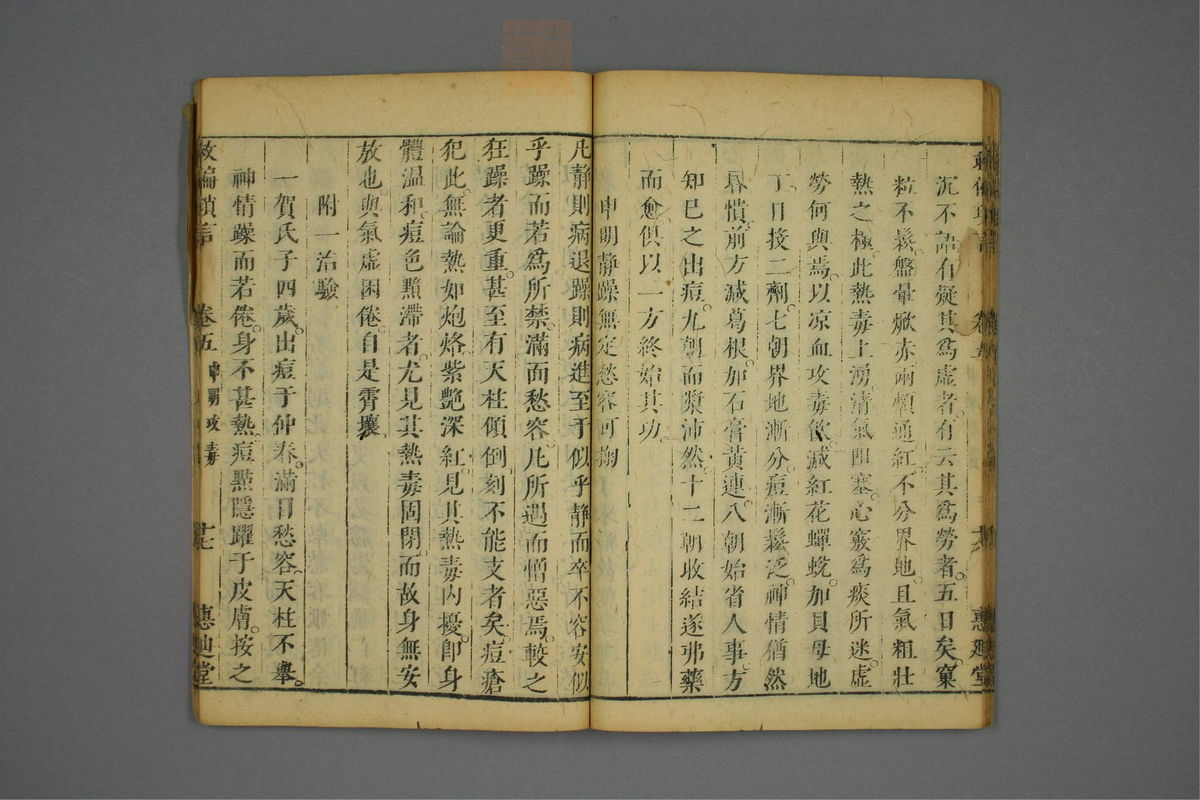 沉不語有疑其爲虛者有云其爲勞者。五日矣。窠
粒不鬆。盤暈焮赤兩頰通紅。不分界地。且氣粗壯
熱之極。此熱毒上湧。清氣阻塞。心竅爲痰所迷。虛
勞何與焉。以凉血攻毒飲。減紅花蟬蛻。加貝母地
丁。日投二劑。七朝界地漸分。痘漸鬆泛。神情猶然
昏憒。前方減葛根。加石膏黃連。八朝始省人事。方
知巳之出痘。九朝而漿沛然。十二朝收結遂弗藥
而愈。俱以一方終始其功。
申明靜躁無定愁容可掬
凡靜則病退。躁則病進。至于似乎靜而卒不容安。似
乎躁而若爲所禁。滿面愁容。凡所遇而憎惡焉。較之
狂躁者更重。甚至有天柱傾倒。刻不能支者矣。痘瘡
犯此。無論熱如炮烙紫艷深紅。見其熱毒內擾。卽身
體温和。痘色黯滯者。尤見其熱毒固閉。而故身無安
放也。與氣虛困倦。自是霄壤。
附一治驗
一賀氏子四歲。出痘于仲春。滿目愁容。天柱不舉。
神情躁而若倦。身不甚熱。痘點隱躍于皮膚。按之
救偏瑣言 卷五 申明攻毒 十七 惠迪堂